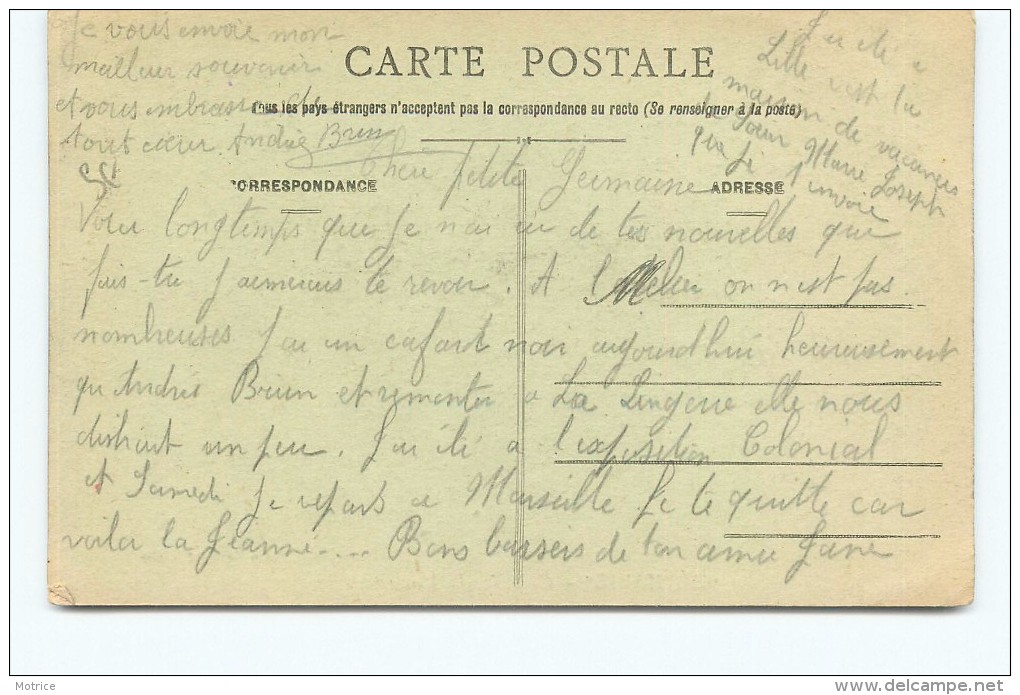 Je vous envoie mon
meilleur souvenir
et vous embrasse de
tout cœur. Andrée Brun
CARTE POSTALE
Tous les pays étrangers n'acceptent pas la correspondance au recto (Se renseigner à la poste)
J'ai été a
Lille c'est la
maison de vacances
de Sœur Marie Joseph
que je t'envoie
CORRESPONDANCE
ADRESSE
Chère petite Germaine
Voila longtemps que je n'ai eu de tes nouvelles que
fais-tu j'aimerais te revoir. A l'atelier on n'est pas
nombreuses J'ai un cafard noir aujourd'hui heureusement
qu'Andrée Brun est remontée a La Lingerie elle nous
distrait un peu. J'ai été a l'exposition Colonial
et Samedi je repars a Marseille Je te quitte car
voila la Jeanne.... Bons baisers de ton amie Jane
Motrice
delcampe.net